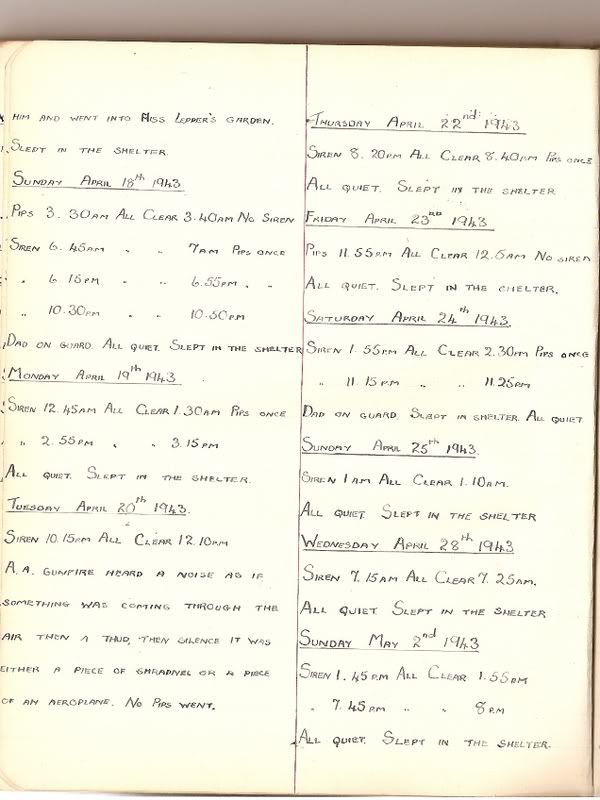 HIM AND WENT INTO MISS LEPPER'S GARDEN.
SLEPT IN THE SHELTER.
SUNDAY APRIL 18th 1943
PIPS 3.30AM ALL CLEAR 3.40AM NO SIREN
SIREN 6.45AM " " 7AM PIPS ONCE
" 6.15PM " " 6.55PM " "
" 10.30PM " " 10.50PM
DAD ON GUARD. ALL QUIET. SLEPT IN THE SHELTER
MONDAY APRIL 19th 1943
SIREN 12.45AM ALL CLEAR 1.30AM PIPS ONCE
" 2.55PM " " 3.15PM
ALL QUIET. SLEPT IN THE SHELTER.
TUESDAY APRIL 20th 1943.
SIREN 10.15PM ALL CLEAR 12.10PM
A.A. GUNFIRE HEARD A NOISE AS IF
SOMETHING WAS COMING THROUGH THE
AIR THEN A THUD, THEN SILENCE IT WAS
EITHER A PIECE OF SHRAPNEL OR A PIECE
OF AN AEROPLANE. NO PIPS WENT.
THURSDAY APRIL 22nd 1943
SIREN 8.20PM ALL CLEAR 8.40PM PIPS ONCE
ALL QUIET. SLEPT IN THE SHELTER
FRIDAY APRIL 23RD 1943.
PIPS 11.55PM ALL CLEAR 12.5AM NO SIREN
ALL QUIET. SLEPT IN THE SHELTER.
SATURDAY APRIL 24th 1943.
SIREN 1.55PM ALL CLEAR 2.30PM PIPS ONCE
" 11.15PM " " 11.25PM
DAD ON GUARD. SLEPT IN SHELTER. ALL QUIET
SUNDAY APRIL 25th 1943.
SIREN 1AM ALL CLEAR 1.10AM.
ALL QUIET. SLEPT IN THE SHELTER
WEDNESDAY APRIL 28th 1943
SIREN 7.15AM ALL CLEAR 7.25AM.
ALL QUIET. SLEPT IN THE SHELTER
SUNDAY MAY 2nd 1943
SIREN 1.45PM ALL CLEAR 1.55PM
" 7.45PM " " 8PM
ALL QUIET. SLEPT IN THE SHELTER.